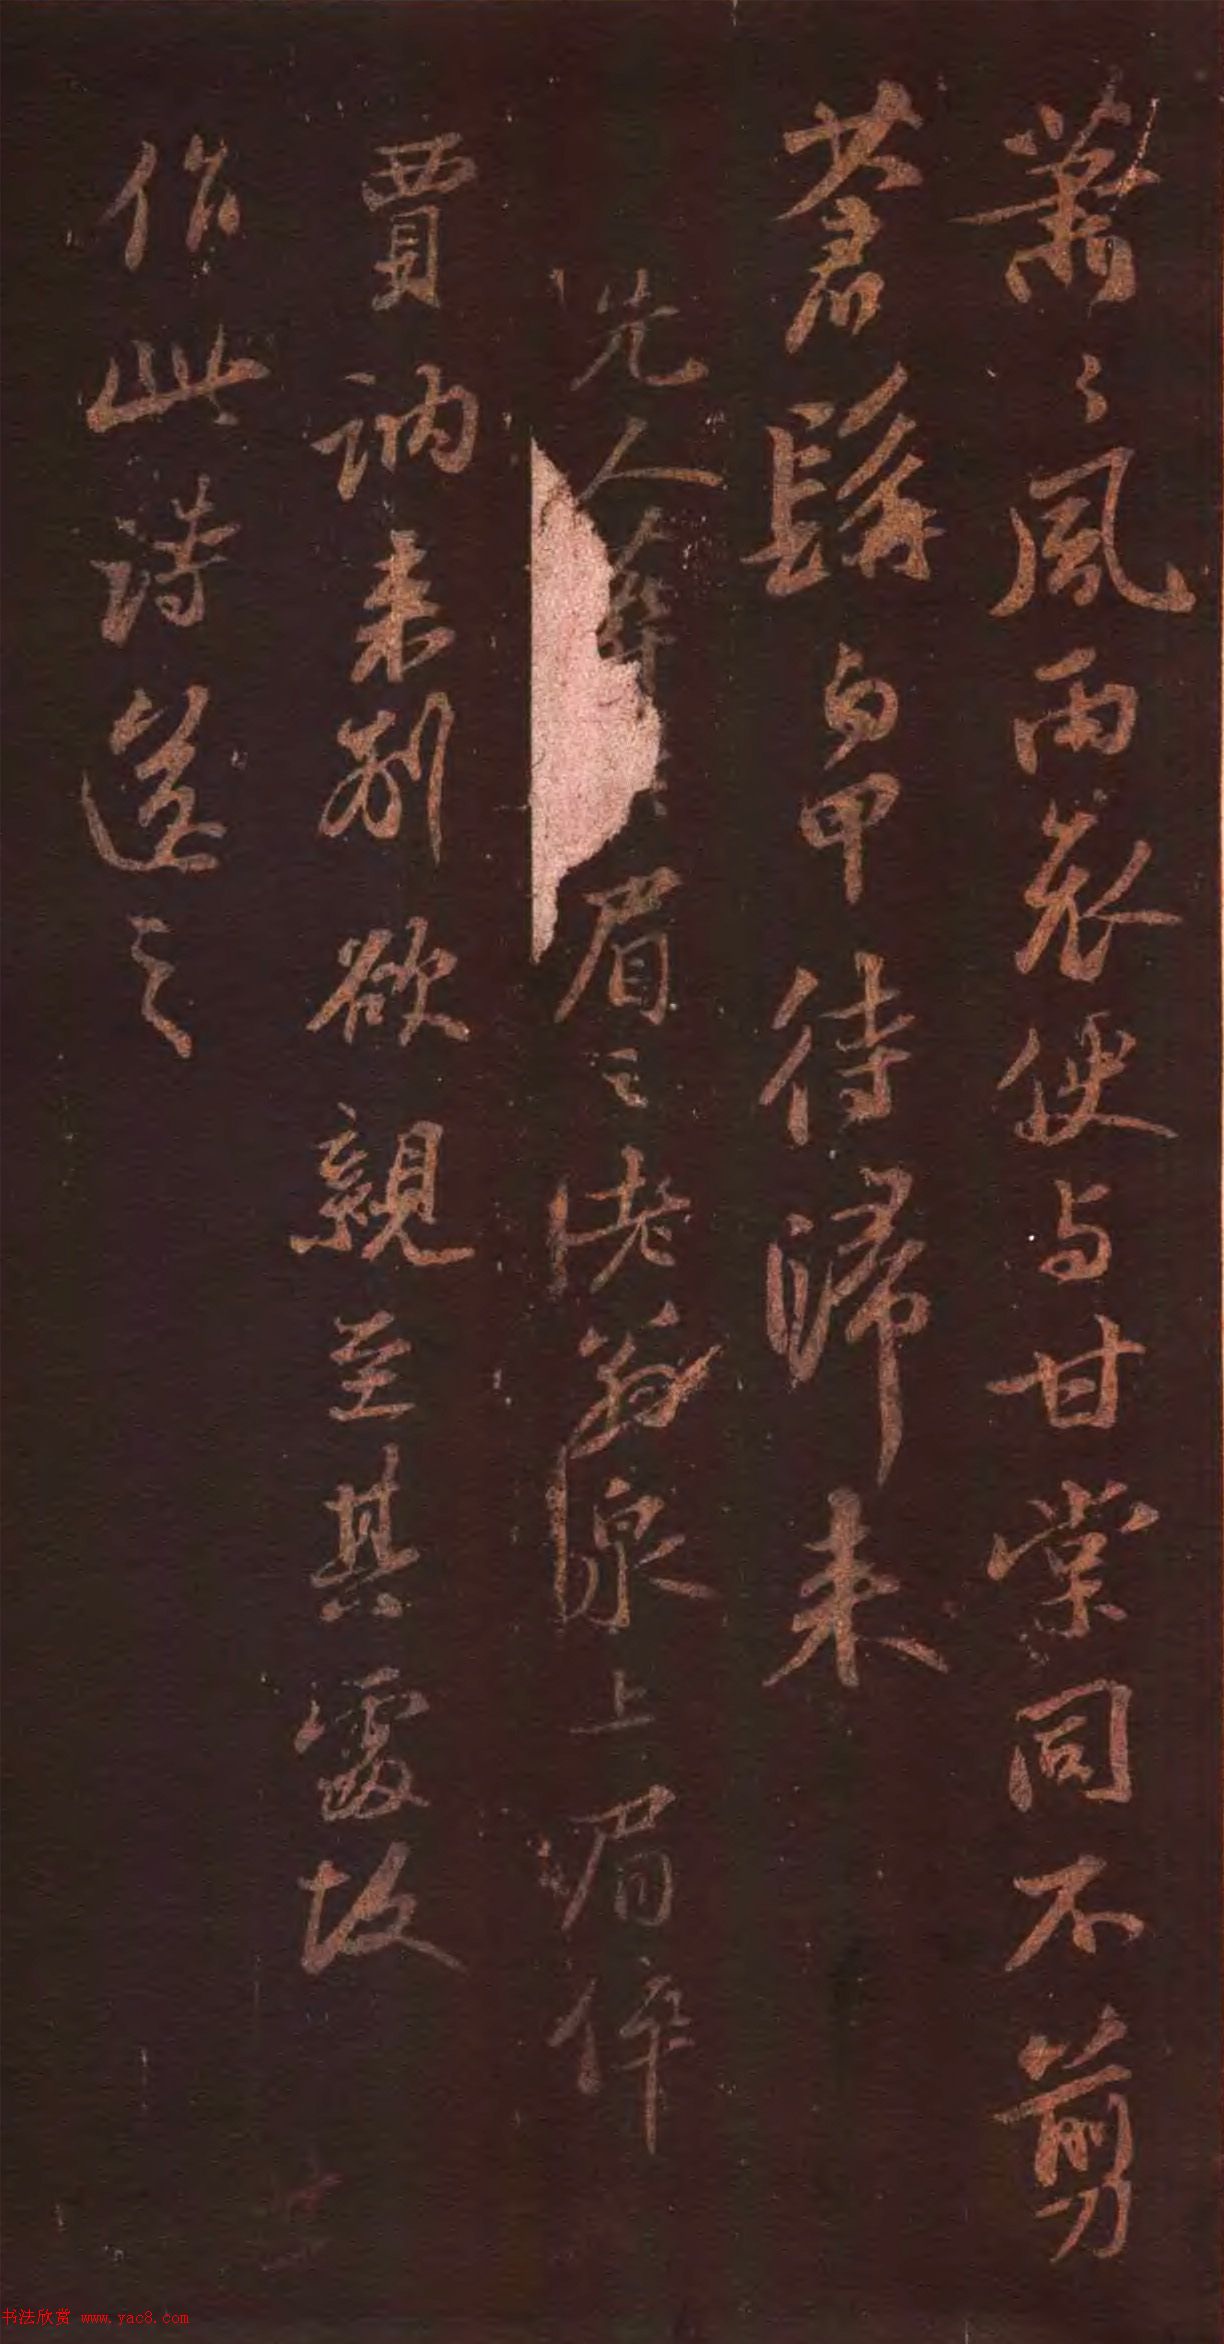 蕭〻風雨哀便与甘棠同不剪
蒼髯白甲待歸来
先人葬眉之老翁泉上眉倅
賈訥来别欲親至其處故
作此詩送之
书法欣赏 www.yac8.com